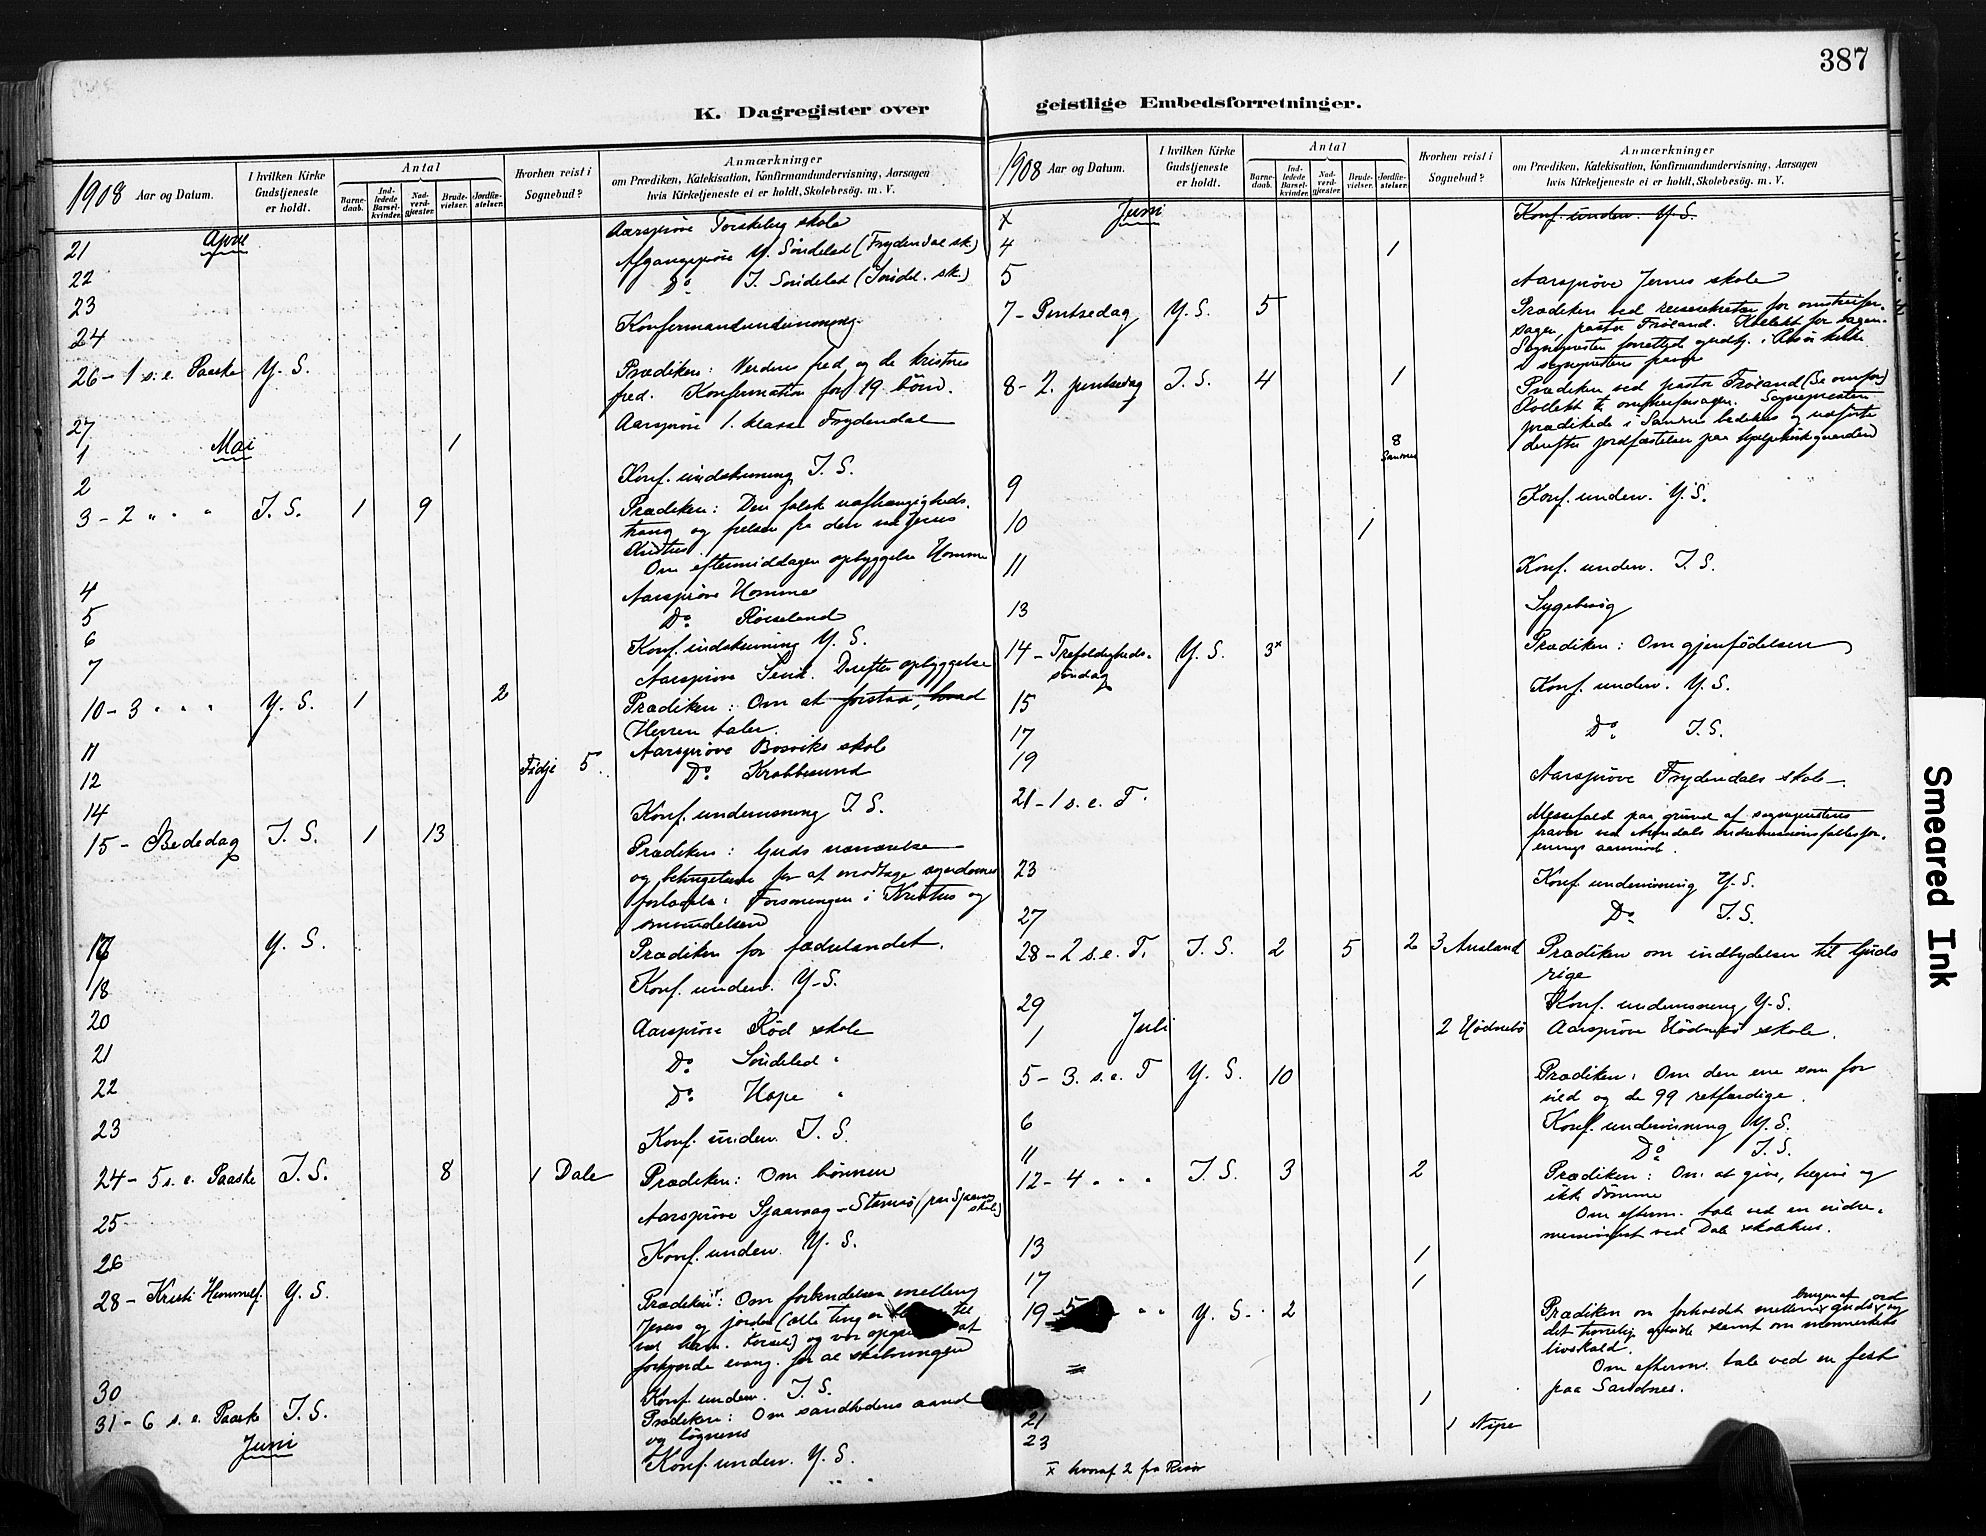 387
K. Dagregister over geistlige Embedsforretninger.
1908 Aar og Datum.
I hvilken Kirke Gudstjeneste er holdt.
Antal
Barnedaab.
Indledede Barselkvinder.
Nadverdgjæster.
Brudevielser.
Jordfæstelser.
Hvorhen reist i Sognebud?
Anmærkninger
om Prædiken, Katekisation, Konfirmandundervisning, Aarsagen
hvis Kirketjeneste ei er holdt, Skolebesøg. m. V.
April
21 Aarsprøve Torskeberg skole
22 Afgangsprøve Y. Söndeled (Frydendal sk.)
23 Do I. Söndeled (Söndel. sk.)
24 Konfirmandundervisning.
26 - 1 s. e. Paaske Y. S. Prædiken: Verdens fred og de kristnes
fred. Konfirmation for 19 börn.
27 Aarsprøve 1. klasse Frydendal
Mai
1 1
2 Konf. indskrivning I. S.
3 - 2 " " " I. S. 1 9 Prædiken: Den falske uafhængigheds
trang og frelsen fra den ved Jesus
Kristus
Om eftermiddagen opbyggelse Homme
4 Aarsprøve Homme
5 Do Röiseland
6 Konf. indskrivning Y. S.
7 Aarsprøve Lend. Derefter opbyggelse
10 - 3 " " " Y. S. 1 2 Prædiken: Om at forstaa, hvad
Herren taler.
11 Aarsprøve Bosviks skole
12 Fidje 5 Do Krabbesund
14 Konf. undervisning I. S.
15 - Bededag I. S. 1 13 Prædiken: Guds nærværelse
og betingelserne for at modtage syndernes
forladelse: Forsoningen i Kristus og
omvendelsen
17 Y. S. Prædiken for fædrelandet.
18 Konf. underv. Y. S.
20 Aarsprøve Röd skole
21 Do Söndeled "
22 Do Hope "
23 Konf. underv. I. S.
24 - 5 s. e. Paaske I. S. 8 1 Dale Prædiken: Om bönnen
25 Aarsprøve Sjaavaag - Stamsö
26 Konf. underv. Y. S.
28 - Kristi Himmelf. Y. S. Prædiken: Om forbindelsen mellem
Jesus og jorden (alle ting er til
ved ham. Korset) og vor opgave at
forkynde evang. for al skabningen
30 Konf. underv. I. S.
31 - 6 s. e. Paaske I. S. Prædiken: Om sandhedens aand
og lögnens
Juni
Konf. underv. Y. S.
1908 Aar og Datum.
I hvilken Kirke Gudstjeneste er holdt.
Antal
Barnedaab.
Indledede Barselkvinder.
Nadverdgjæster.
Brudevielser.
Jordfæstelser.
Hvorhen reist i Sognebud?
Anmærkninger
om Prædiken, Katekisation, Konfirmandundervisning, Aarsagen
hvis Kirketjeneste ei er holdt, Skolebesøg. m. V.
x Juni Konf. underv. Y. S.
4 1
5 Aarsprøve Jernes skole
7 - Pintsedag Y. S. 5 Prædiken ved reisesekretær for omstreifer-
sagen, pastor Fröland. Kollekt for sagen.
Sognepresten forrettede gudstj. i Risör kirke
i sogneprestens
8 - 2. pintsedag I. S. 4 1 Prædiken ved pastor Fröland (Se ovenfor)
Kollekt til omstreifersagen. Sognepresten
prædikede i Sandnes bedehus og udførte
derefter jordfæstelser paa hjelpekirkegaarden
8
Sandnes
9 Konf. underv. Y. S.
10 1
11 Konf. underv. I. S.
13 Sygebesög
14 - Trefoldigheds-
söndag Y. S. 3x Prædiken: Om gjenfödelsen
15 Konf. underv. Y. S.
17 Do I. S.
19 Aarsprøve Frydendals skole
21 - 1 s. e. T. Messefald paa grund af sogneprestens
fravær ved Arendals indremissionsfællesfor-
enings aarsmöde
23 Konf. undervisning Y. S.
27 Do I. S.
28 - 2 s. e. T. I. S. 2 5 2 3 Ausland Prædiken om indbydelsen til Guds
rige
29 Konf. undervisning Y. S.
1 Juli 2 Hödnebö Aarsprøve Hödnebö skole.
5 - 3. s. e. T Y. S. 10 Prædiken: Om den ene som for
vild og de 99 retfærdige.
6 Konf. undervisning Y. S.
11 Do I. S.
12 - 4 " " " I. S. 3 2 Prædiken: Om at give, tilgive og
ikke dömme
Om efterm. tale ved en indre-
missionsfest ved Dale skolehus.
13 1
17 1
19 5 " " Y. S. 2 Prædiken om forholdet mellem brugen af Guds ord og
det timelige arbeide samt om menneskets
livskald.
Om efterm. tale ved en fest
paa Sandnes.
1
21 1 Nipe
23
x hvoraf 2 fra Risör
Smeared Ink